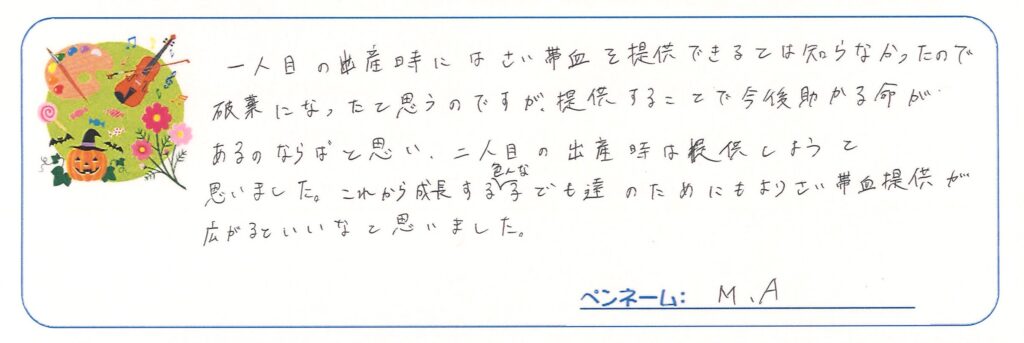 一人目の出産時にはさい帯血を提供できるとは知らなかったので
破棄になったと思うのですが、提供することで今後助かる命が
あるのならばと思い、二人目の出産時は提供しようと
思いました。これから成長する色んな子でも達のためにもよりさい帯血提供が
広がるといいなと思いました。
ペンネーム: M、A